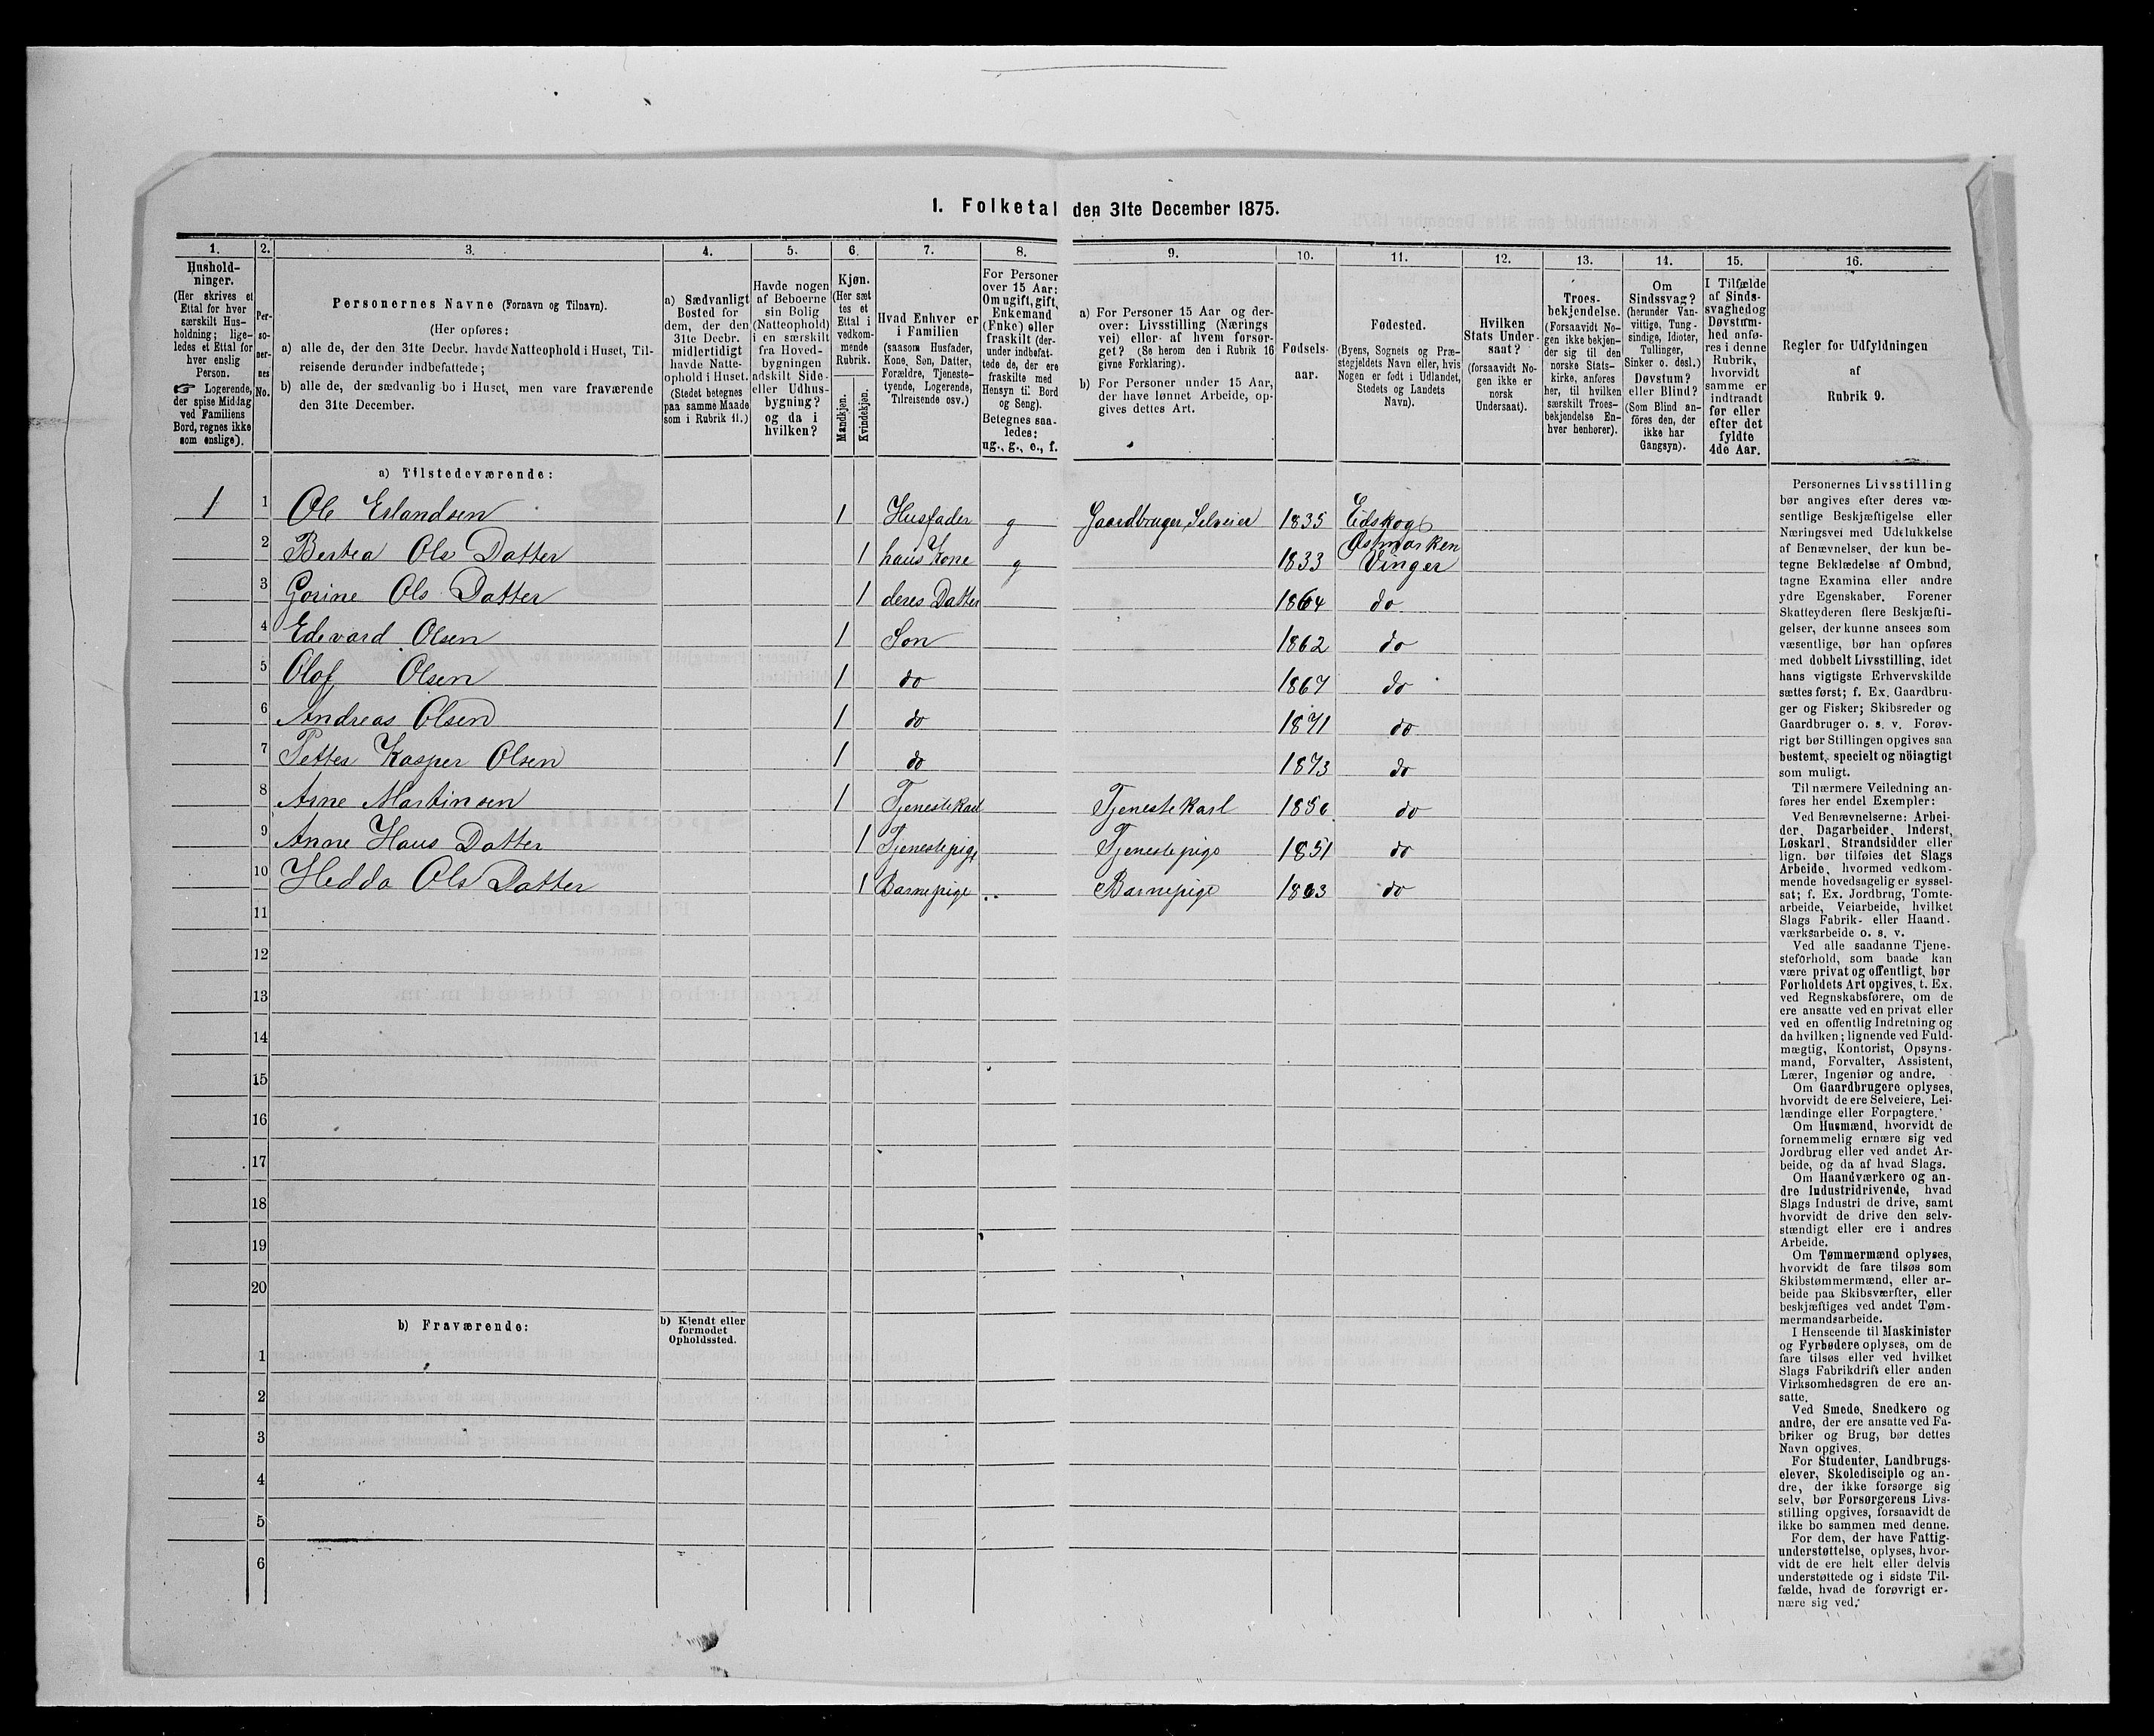 1. Folketal den 31te December 1875.
1. 2. 3. 4. 5. 6. 7. 8. 9. 10. 11. 12. 13. 14. 15. 16.
Hushold-
ninger.
(Her skrives et
Ettal for hver
særskilt Hus-
holdning; lige-
ledes et Ettal for
hver enslig
Person.
☞ Logerende,
der spise Middag
ved Familiens
Bord, regnes ikke
som enslige).
Per-
so-
ner-
nes
No.
Personernes Navne (Fornavn og Tilnavn).
(Her opføres:
a) alle de, der den 31te Decbr. havde Natteophold i Huset, Til-
reisende derunder indbefattede;
b) alle de, der sædvanlig bo i Huset, men vare fraværende
den 31te December.
a) Sædvanligt
Bosted for
dem, der den
31te Decbr.
midlertidigt
havde Natte-
ophold i Huset.
(Stedet betegnes
paa samme Maade
som i Rubrik 11.)
Havde nogen
af Beboerne
sin Bolig
(Natteophold)
i en særskilt
fra Hoved-
bygningen
adskilt Side-
eller Udhus-
bygning?
og da i
hvilken?
Kjøn.
(Her sæt
tes et
Ettal i
vedkom-
mende
Rubrik.
Mandkjøn.
Kvindekjøn.
Hvad Enhver er
i Familien
(saasom Husfader,
Kone, Søn, Datter,
Forældre, Tjeneste-
tyende, Logerende,
Tilreisende osv.)
For Personer
over 15 Aar:
Om ugift, gift,
Enkemand
(Enke) eller
fraskilt (der-
under indbefat-
tede de, der ere
fraskilte med
Hensyn til Bord
og Seng).
Betegnes saa-
ledes:
ug., g., e., f.
a) For Personer 15 Aar og der-
over: Livsstilling (Nærings
vei) eller af hvem forsør-
get? (Se herom den i Rubrik 16
givne Forklaring).
b) For Personer under 15 Aar,
der have lønnet Arbeide, op-
gives dettes Art.
Fødsels-
aar.
Fødested.
(Byens, Sognets og Præ-
stegjeldets Navn eller, hvis
Nogen er født i Udlandet,
Stedets og Landets
Navn).
Hvilken
Stats Under-
saat?
(forsaavidt No-
gen ikke er
norsk
Undersaat).
Troes-
bekjendelse.
(Forsaavidt No-
gen ikke bekjen-
der sig til den
norske Stats-
kirke, anføres
her, til hvilken
særskilt Troes-
bekjendelse En-
hver henhører).
Om
Sindssvag?
(herunder Van-
vittige, Tung-
sindige, Idioter,
Tullinger,
Sinker o. desl.)
Døvstum?
eller Blind?
(Som Blind an-
föres den, der
ikke har
Gangsyn).
I Tilfælde
af Sinds-
svaghed og
Døvstum-
hed anfø-
res i denne
Rubrik,
hvorvidt
samme er
indtraadt
før eller
efter det
fyldte
4de Aar.
Regler for Udfyldningen
af
Rubrik 9.
a) Tilstedeværende:
1 1 Ole Erlandsen 1 Husfader g Gaardbruger, Selveier 1835 Eidskog
2 Bertea Ols Datter 1 hans Kone g 1833 Østmarken Vinger
3 Gorine Ols Datter 1 deres Datter 1864 do
4 Edevard Olsen 1 Son 1862 do
5 Olof Olsen 1 do 1867 do
6 Andreas Olsen 1 do 1871 do
7 Petter Kasper Olsen 1 do 1873 do
8 Arne Martinsen 1 Tjenestekarl Tjenestekarl 1856 do
9 Anne Hans Datter 1 Tjenestepige Tjenestepige 1851 do
10 Hedda Ols Datter 1 Barnepige Barnepige 1863 do
11
12
13
14
15
16
17
18
19
20
b) Fraværende:
b) Kjendt eller
formodet
Opholdssted.
1
2
3
4
5
6
Personernes Livsstilling
bør angives efter deres væ-
sentlige Beskjæftigelse eller
Næringsvei med Udelukkelse
af Benævnelser, der kun be-
tegne Beklædelse af Ombud,
tagne Examina eller andre
ydre Egenskaber. Forener
Skatteyderen flere Beskjæfti-
gelser, der kunne ansees som
væsentlige, bør han opføres
med dobbelt Livsstilling, idet
hans vigtigste Erhvervskilde
sættes først; f. Ex. Gaardbru-
ger og Fisker; Skibsreder og
Gaardbruger o. s. v. Forøv-
rigt bør Stillingen opgives saa
bestemt, specielt og nöiagtigt
som muligt.
Til nærmere Veiledning an-
føres her endel Exempler:
Ved Benævnelserne: Arbei-
der, Dagarbeider, Inderst,
Løskarl, Strandsidder eller
lign. bør tilføies det Slags
Arbeide, hvormed vedkom-
mende hovedsagelig er syssel-
sat; f. Ex. Jordbrug, Tomte-
arbeide, Veiarbeide, hvilket
Slags Fabrik- eller Haand-
værksarbeide o. s. v.
Ved alle saadanne Tjene-
steforhold, som baade kan
være privat og offentligt, bør
Forholdets Art opgives, t. Ex.
ved Regnskabsførere, om de
ere ansatte ved en privat eller
ved en offentlig Indretning og
da hvilken; lignende ved Fuld-
mægtig, Kontorist, Opsyns-
mand, Forvalter, Assistent,
Lærer, Ingeniør og andre.
Om Gaardbrugere oplyses,
hvorvidt de ere Selveiere, Lei-
lændinge eller Forpagtere.
Om Husmænd, hvorvidt de
fornemmelig ernære sig ved
Jordbrug eller ved andet Ar-
beide, og da af hvad Slags.
Om Haandværkere og an-
dre Industridrivende, hvad
Slags Industri de drive, samt
hvorvidt de drive den selv-
stændigt eller ere i andres
Arbeide.
Om Tømmermænd oplyses,
hvorvidt de fare tilsøs som
Skibstømmermænd, eller ar-
beide paa Skibsværfter, eller
beskjæftiges ved andet Tøm-
mermandsarbeide.
I Henseende til Maskinister
og Fyrbødere oplyses, om de
fare tilsøs eller ved hvilket
Slags Fabrikdrift eller anden
Virksomhedsgren de ere an-
satte.
Ved Smede, Snedkere og
andre, der ere ansatte ved Fa-
briker og Brug, bør dettes
Navn opgives.
For Studenter, Landbrugs-
elever, Skoledisciple og an-
dre, der ikke forsørge sig
selv, bør Forsørgerens Livs-
stilling opgives, forsaavidt de
ikke bo sammen med denne.
For dem, der have Fattig-
understøttelse, oplyses, hvor-
vidt de ere helt eller delvis
understøttede og i sidste Til-
fælde, hvad de forøvrigt er-
nære sig ved.